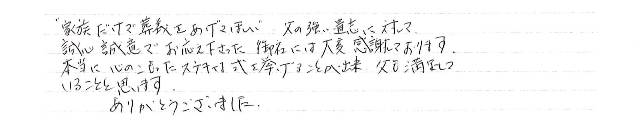 "家族だけで葬教をあげてほしい" 父の強い遺志に対して
誠心誠意でお応え下さった御社には大変感謝しております。
本当に心のこもったステキな式を挙げることが出来 父も満足して
いることと思います。
ありがとうございました。